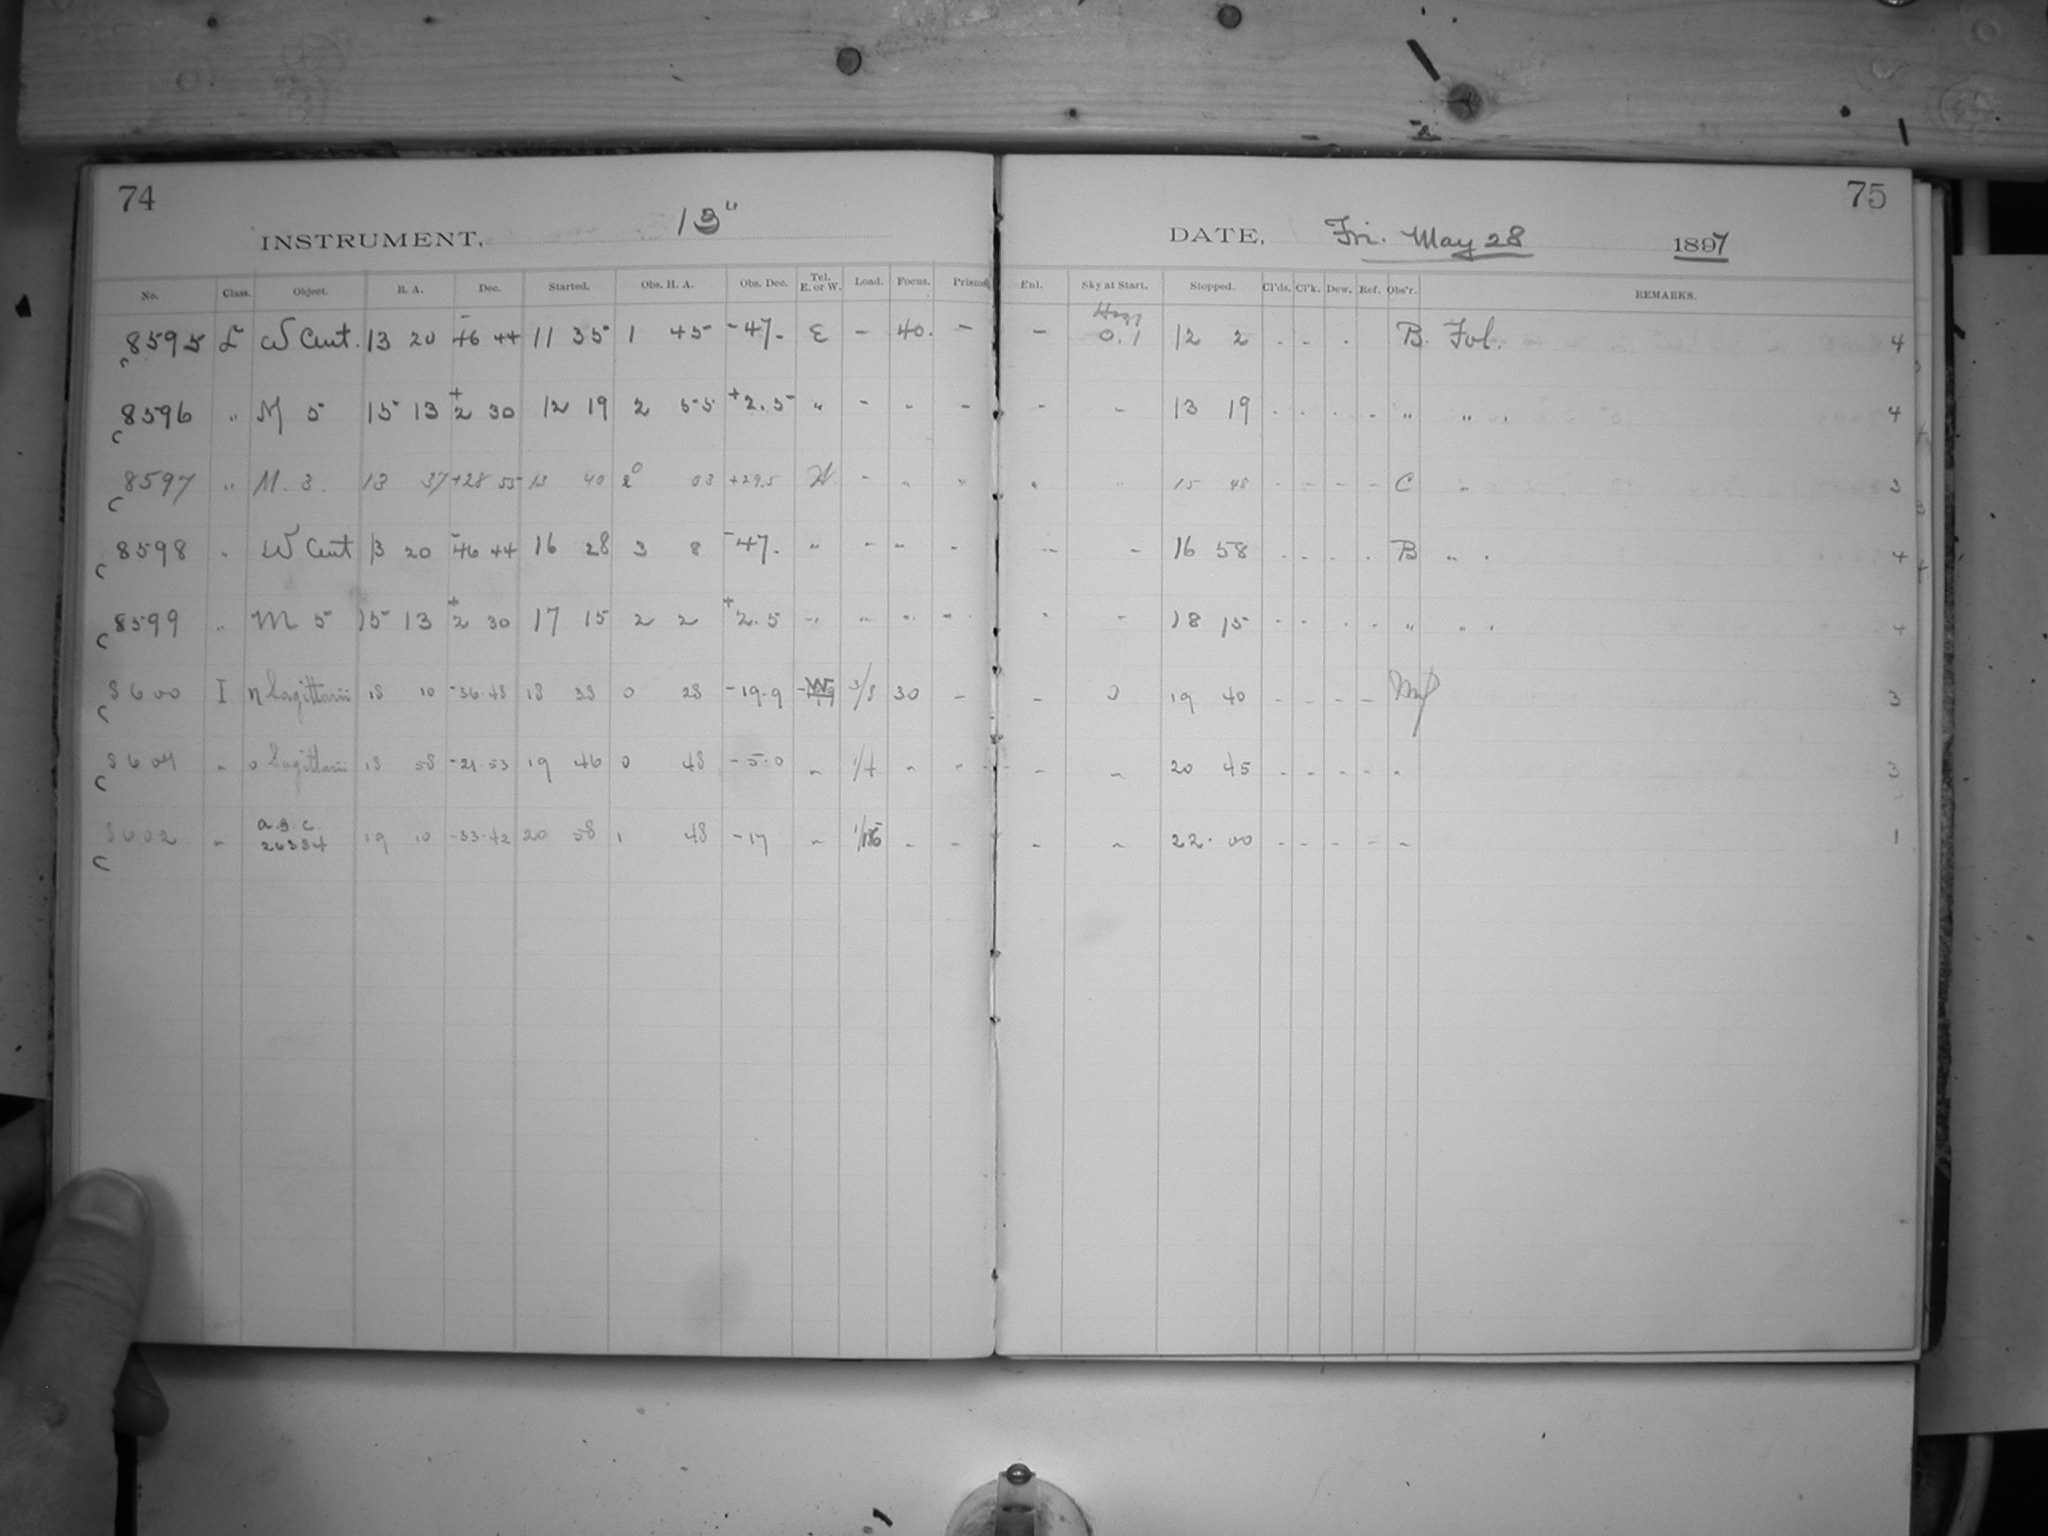 74
INSTRUMENT, 13"
No. Class. Object. R. A. Dec. Started. Obs. H. A. Obs. Dec. Tel. E. or W. Load. Focus. Prisms.
8595 L ω Cent. 13 20 -46 44 11 35 1 45 -47. E - 40. -
8596 " M 5 15 13 +2 30 12 19 2 55 +2.5 " - - -
8597 " M. 3. 13 37 +28 55 13 40 0 03 +29.5 W - " "
8598 " ω Cent 13 20 -46 44 16 28 3 8 -47. " - - -
8599 " M 5 15 13 +2 30 17 15 2 2 +2.5 " " " -
8600 I η Sagittarii 18 10 -36.48 18 38 0 28 -19.9 W 3/8 30 -
" o Sagittarii 18 58 -21.53 19 46 0 48 -5.0 " 1/4 " "
8602 " a.g.c. 26384 19 10 -33.42 20 58 1 48 -17 " " -
75
DATE, Fri. May 28 1897
Enl. Sky at Start. Stopped. Cl'ds. Cl'k. Dew. Ref. Obs'r. REMARKS.
- 0.1 12 2 - - - B. Fol. 4
- - 13 19 - - - - " " . 4
" " 15 48 - - - - C " 3
- - 16 58 - - - - B " . 4
- - 18 15 - - - - " " . 4
- 0 19 40 - - - - 3
- " 20 45 - - - - " 3
- " 22.00 - - - - - 1